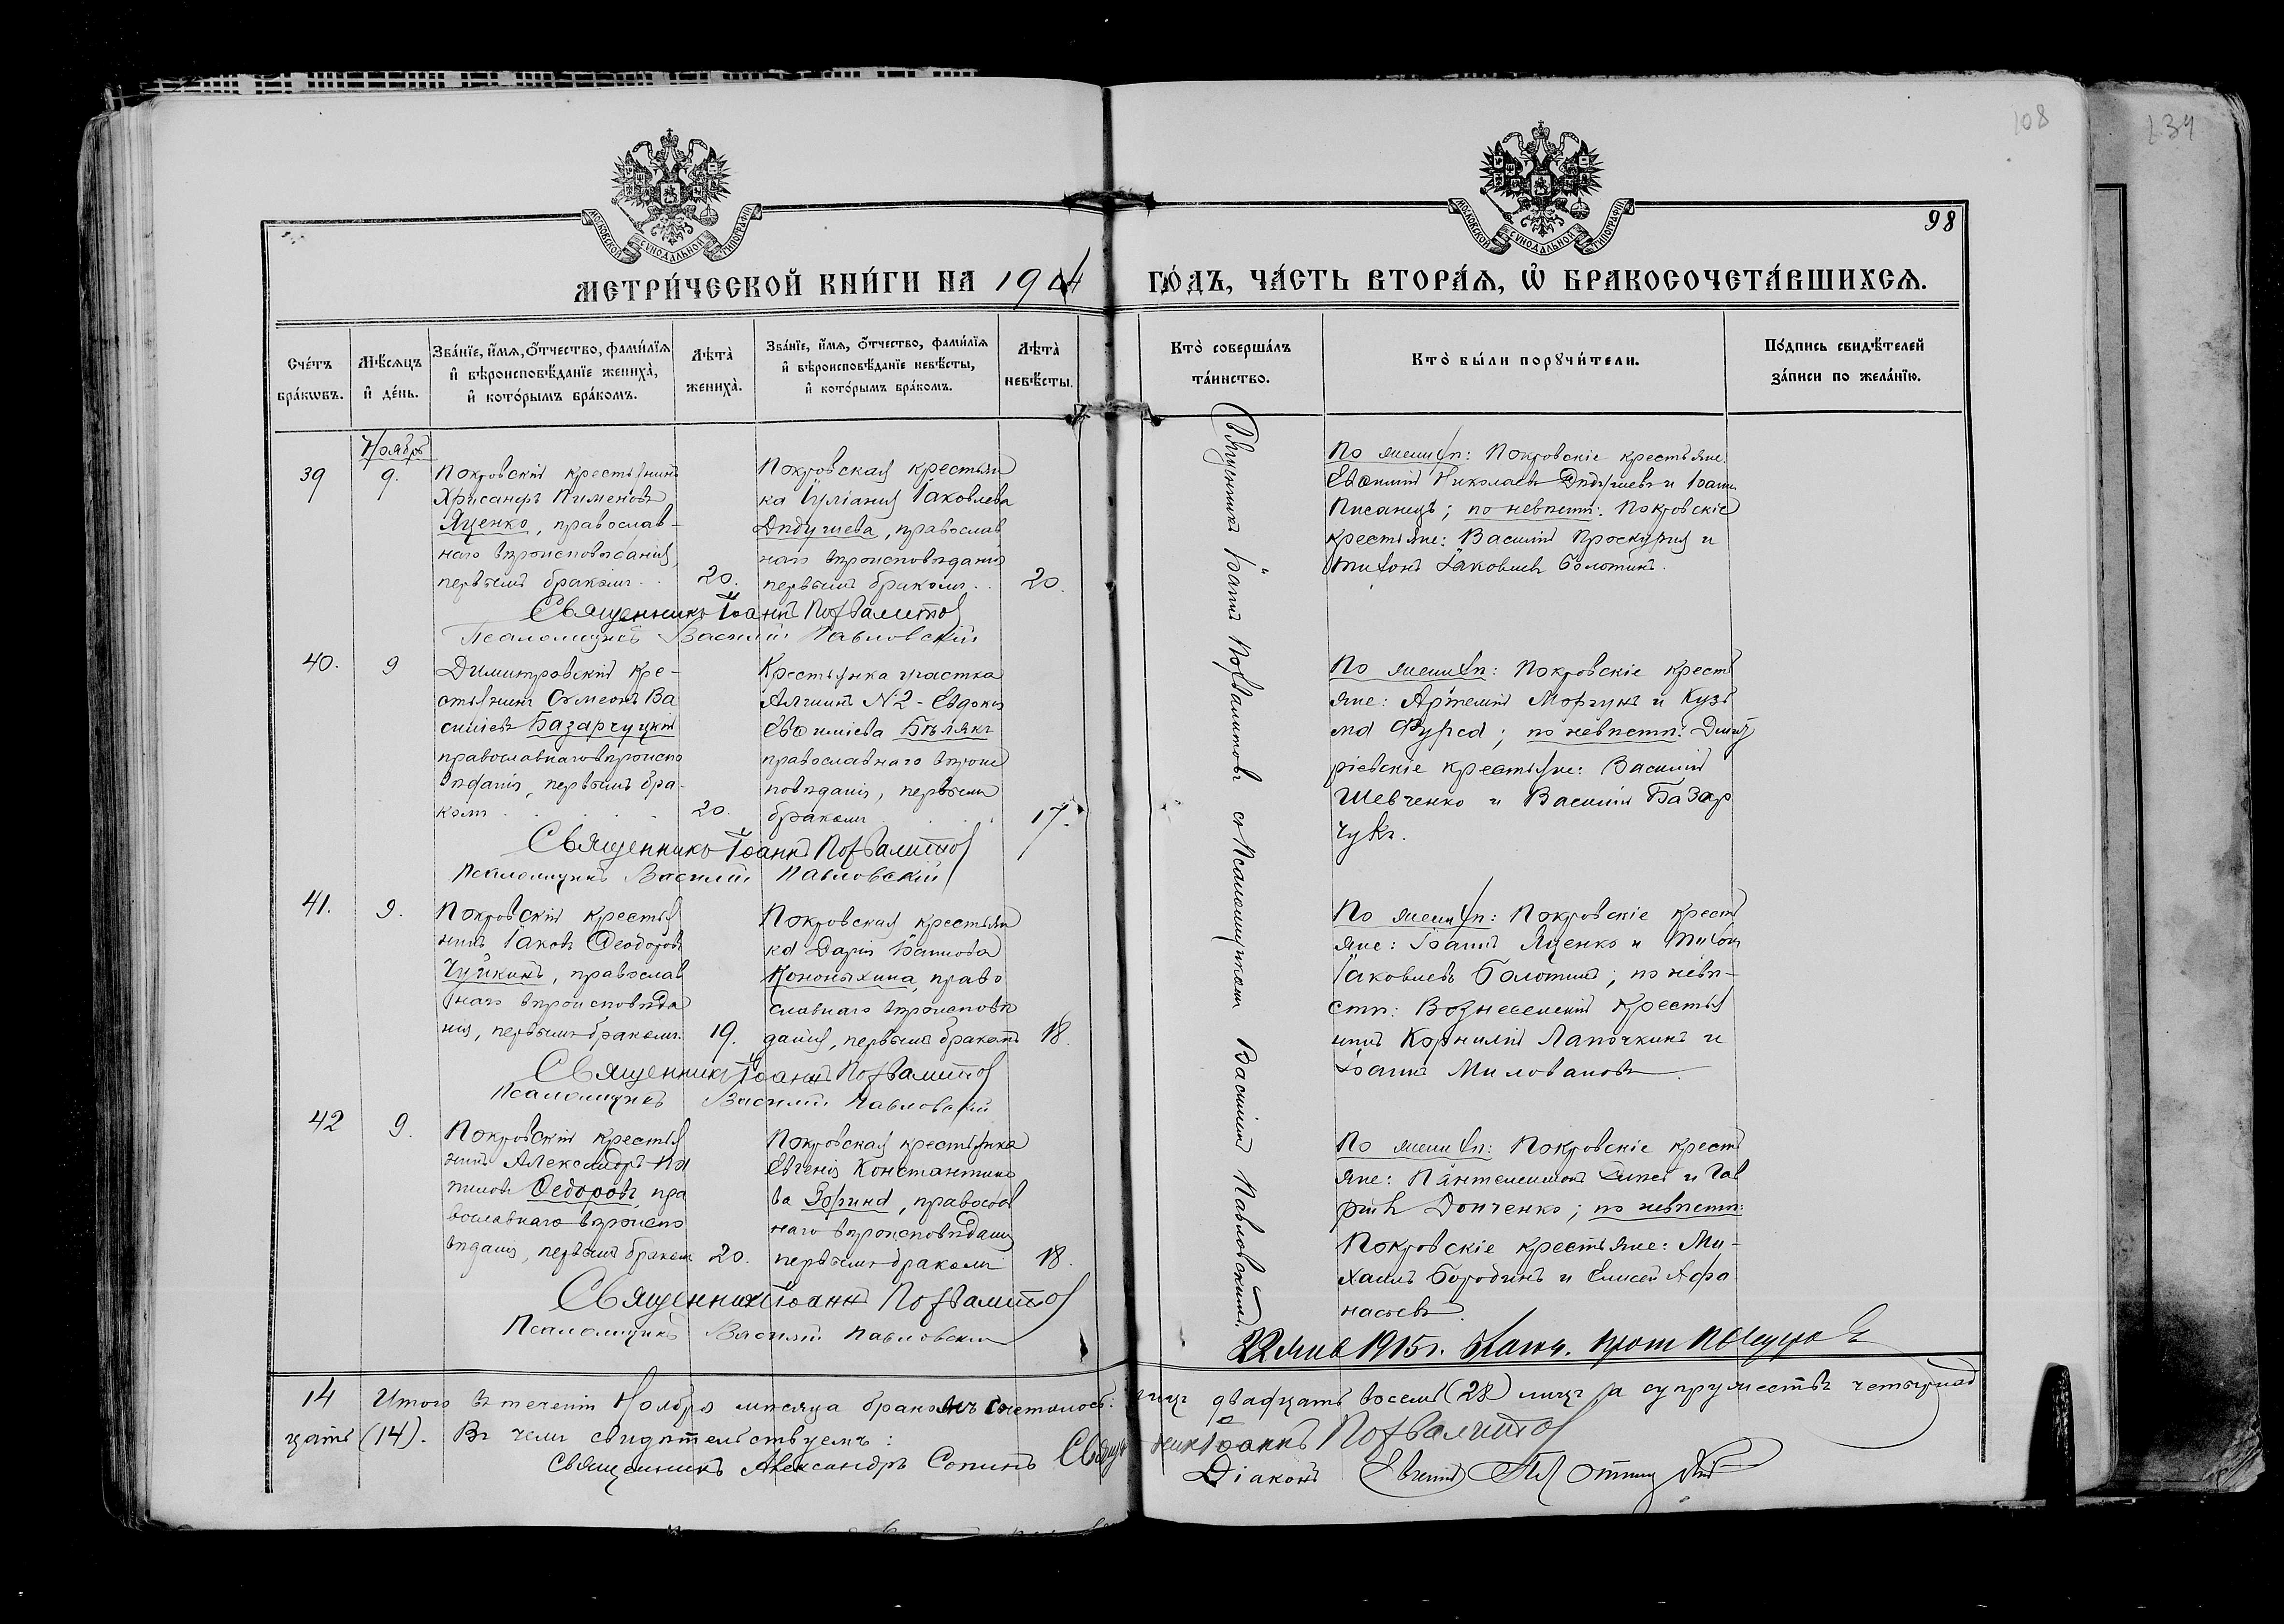 108
234
98
МОСКОВСКОЙ СѴНОДАЛЬНОЙ ТИПОГРАФІИ
МОСКОВСКОЙ СѴНОДАЛЬНОЙ ТИПОГРАФІИ
МЕТРИ́ЧЕСКОЙ КНИ́ГИ НА 1914 ГО́ДЪ, ЧА́СТЬ ВТОРА́Ѧ, Ѽ БРАКОСОЧЕТА́ВШИХСѦ.
Сче́тъ бра́кѡвъ.
Мѣ́сѧцъ и де́нь.
Зва́нїе, и́мѧ, ѻ́тчество, фами́лїѧ и вѣроисповѣ́данїе жениха̀, и кото́рымъ бра́комъ.
Лѣта̀ жениха̀.
Зва́нїе, и́мѧ, ѻ́тчество, фами́лїѧ и вѣроисповѣ́данїе невѣ́сты, и кото́рымъ бра́комъ.
Лѣта̀ невѣ́сты.
Кто̀ соверша́лъ та́инство.
Кто̀ бы́ли порꙋчи́тели.
По́дпись свидѣ́телей за́писи по жела́нїю.
Ноябрь
39
9.
Покровскій крестьянинъ
Хрисанфъ Пименовъ
Яценко, православ-
наго вѣроисповѣданія,
первымъ бракомъ
20.
Покровская крестьян
ка Іуліанія Іаковлева
православ
наго вѣроисповѣданія
первымъ бракомъ
20.
По женихѣ: Покровскіе крестьяне:
Евфимій Николаевъ и Іоаннъ
Писанецъ; по невѣстѣ: Покровскіе
крестьяне: Василій Проскурня и
Тихонъ Іаковлевъ Болотинъ.
Священникъ Іоаннъ Похвалитовъ
Псаломщикъ Василій Павловскій
40.
9
Димитровскій кре-
стьянинъ Симеонъ Ва
силіевъ Базарчуцкій
православнаго вѣроиспо
вѣданія, первымъ бра-
комъ
20.
Крестьянка участка
Алгинъ №2 - Евдокія
Евфиміева Бѣлякъ
православнаго вѣроис
повѣданія, первымъ
бракомъ
17.
По женихѣ: Покровскіе кресть
яне: Артемій Моргунъ и Кузь
ма Фурса; по невѣстѣ: Димит
ріевскіе крестьяне: Василій
Шевченко и Василій Базар
чукъ.
Священникъ Іоаннъ Похвалитовъ
Псаломщикъ Василій Павловскій
41.
9.
Покровскій крестья
нинъ Іаковъ Ѳеодоровъ
Чуйкинъ, православ
наго вѣроисповѣда
нія, первымъ бракомъ.
19.
Покровская крестьян
ка Дарія Іоаннова
Кононыхина, право
славнаго вѣроисповѣ
данія, первымъ бракомъ
18.
По женихѣ: Покровскіе кресть
яне: Іоаннъ Яценко и Тихонъ
Іаковлевъ Болотинъ; по невѣ-
стѣ: Вознесенскій крестья
нинъ Корнилій Лапочкинъ и
Іоаннъ Миловановъ.
Священникъ Іоаннъ Похвалитовъ
Псаломщикъ Василій Павловскій
42
9.
Покровскій крестья
нинъ Александръ
Ѳедоровъ, пра
вославнаго вѣроиспо
вѣданія, первымъ бракомъ
20.
Покровская крестьянка
Евгенія Константино
ва Зорина, православ
наго вѣроисповѣданія
первымъ бракомъ
18.
По женихѣ: Покровскіе кресть
яне: Пантелеимонъ и Гав
ріилъ Донченко; по невѣстѣ:
Покровскіе крестьяне: Ми-
хаилъ Бородинъ и Елисей Афа
насьевъ.
Священникъ Іоаннъ Похвалитовъ
Псаломщикъ Василій Павловскій
Священникъ Іоаннъ Похвалитовъ съ Псаломщикомъ Василіемъ Павловскимъ.
22 янв 1915 г.
14 Итого въ теченіи Ноября мѣсяца бракомъ сочеталось: лицъ двадцать восемь (28) лицъ а супружествъ четырнад
цать (14). Въ чемъ свидѣтельствуемъ:
Священникъ Александръ Сопинъ Священникъ Іоаннъ Похвалитовъ
Діаконъ Евгеній